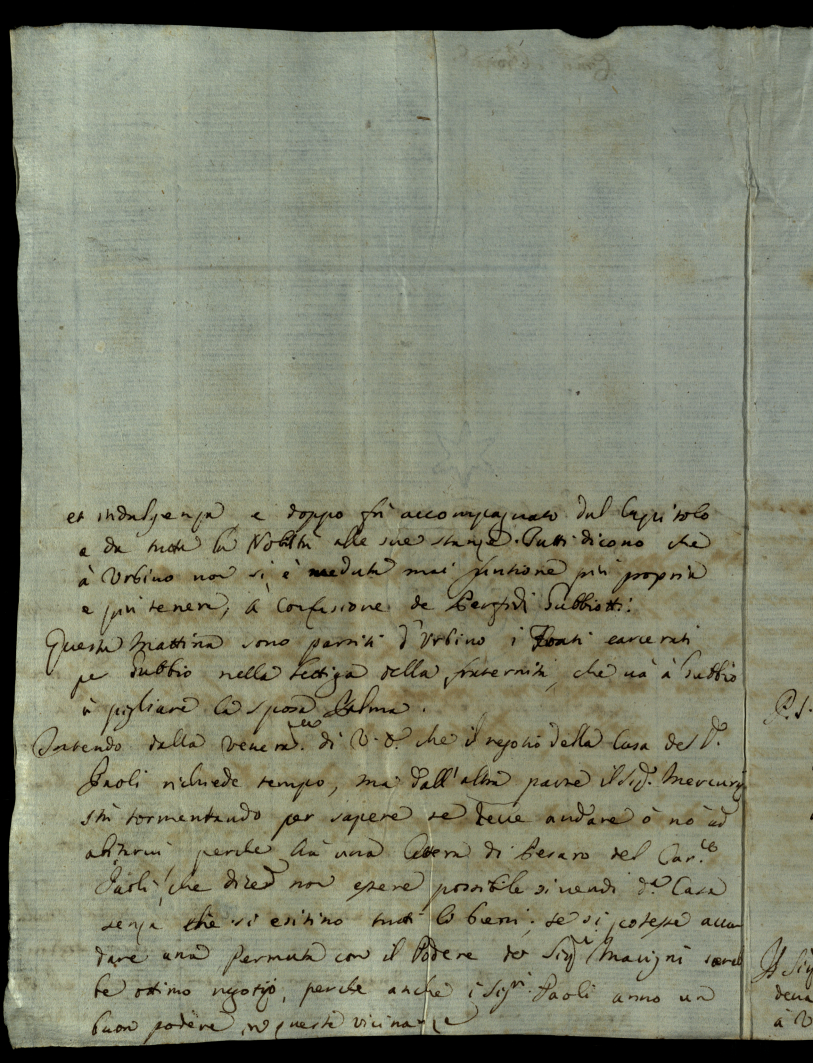 et indulgenza e doppo fù accompagnato dal Capitolo
e da tutta la Nobiltà alle sue stanze. Tutti dicono che
à Urbino non si è veduta mai funtione più propria
e più tenera, à confusione de Perfidi Gubbiotti.
Questa Mattina sono partiti d'Urbino i carcerati
per Gubbio nella lettiga della fraternità, che và à Gubbio
à pigliare la sposa Palma.
Intendo dalla venera.ma di V.S. che il negotio della Casa del S.
Paoli richiede tempo, mà dall'altra parte il Sig. Mercurij
stà tormentando per sapere se deve andare ò nò ad
abitarvi perche hà una lettera di Pesaro del
Paoli che dice non essere possibile si vendi d.a Casa
senza che si esitino tutti li beni; se si potesse accor
dare una Permuta con il Podere de Sig.ri Mavigni sareb
be ottimo negotio, perche anche i Sig.ri Paoli anno un
buon podere in queste vicinanze
P.S.
Il Sig
deva
à V